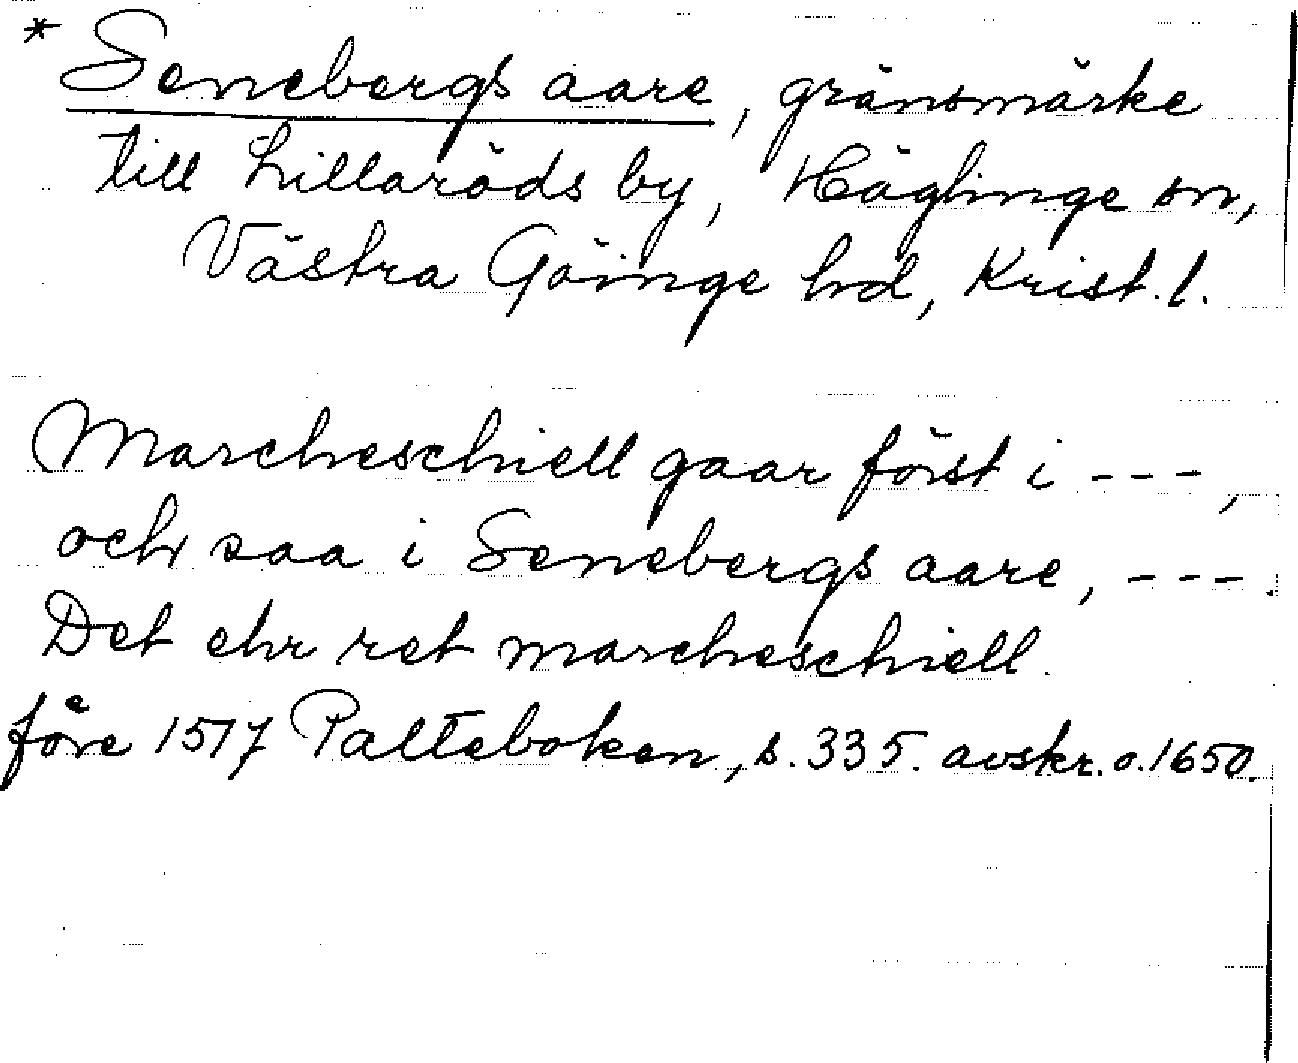 * Senebergs aare, gränsmärke
till Lillaröds by, Häglinge sn,
Västra Göinge hd, Krist. l.
Marcheschiell gaar först i ---,
och saa i Senebergs aare, ---.
Det ehr ret marcheschiell.
före 1517 Palteboken, s. 335. avskr. o. 1650.